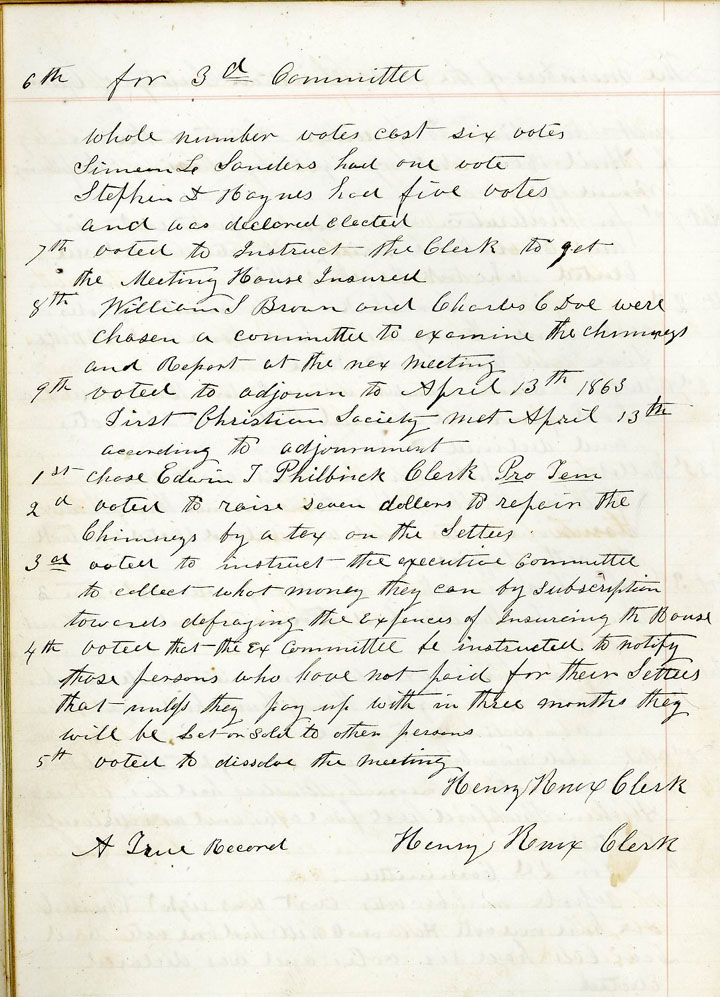 6th for 3d Committee
Whole number votes cast six votes
Simeon L Sanders had one vote
Stephen D Haynes had five votes
and was declared elected
7th voted to Instruct the Clerk to get
the Meeting House Insured
8th William S Brown and Charles C Doe were
chosen a committee to examine the chimneys
and Report at the nex meeting
9th voted to adjourn to April 13th 1863
First Christian Society met April 13th
according to adjournment
1st chose Edwin T Philbrick Clerk Pro Tem
2d voted to raise seven dollers to repair the
Chimneys by a tax on the Settees
3ed voted to instruct the executive Committee
to collect what money they can by Subscription
towards defraging the expences of Insurcing th House
4th voted that the Ex Committee be instructed to notify
those persons who have not paid for their Settees
that unless they pay up with in three months they
will be Let or Sold to other persons
5th voted to dissolve the meeting
Henry Knox Clerk
A True Record Henry Knox Clerk